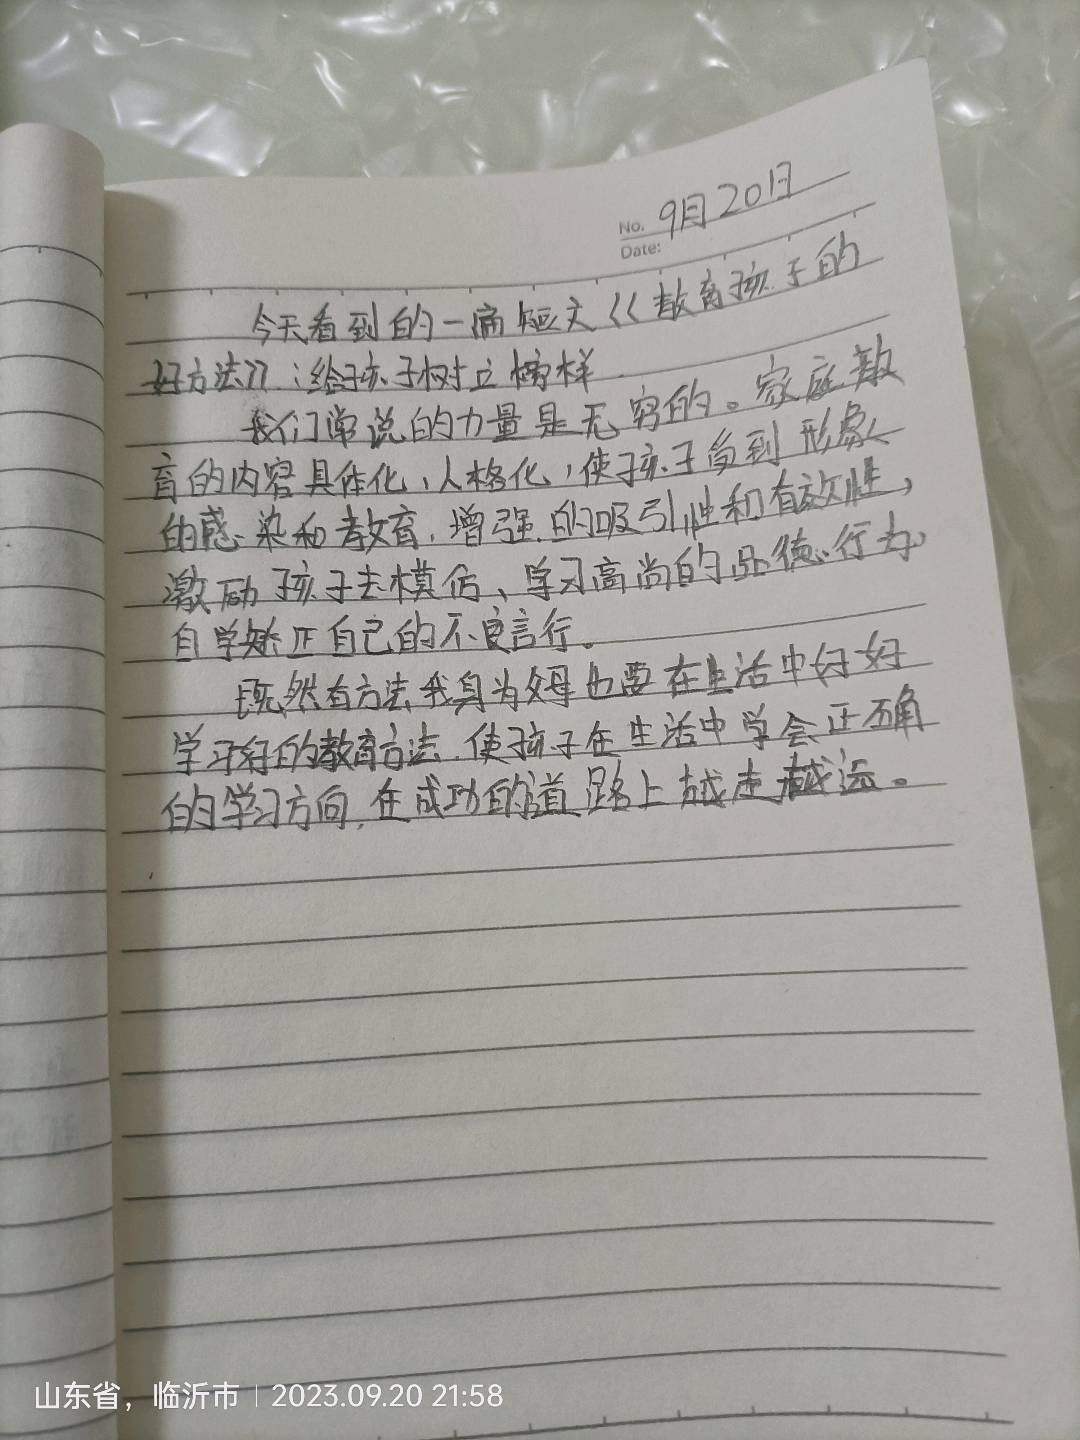 No. 9月20日
Date:
今天看到的一篇短文《教育孩子的
好方法》:给孩子树立榜样
我们常说的力量是无穷的。家庭教
育的内容具体化,人格化,使孩子受到形象
的感染和教育,增强的吸引性和有效性,
激励孩子去模仿、学习高尚的品德行为
自学矫正自己的不良言行。
既然有方法我身为父母也要在生活中好好
学习好的教育方法,使孩子在生活中学会正确
的学习方向,在成功的道路上越走越远。
山东省,临沂市 | 2023.09.20 21:58